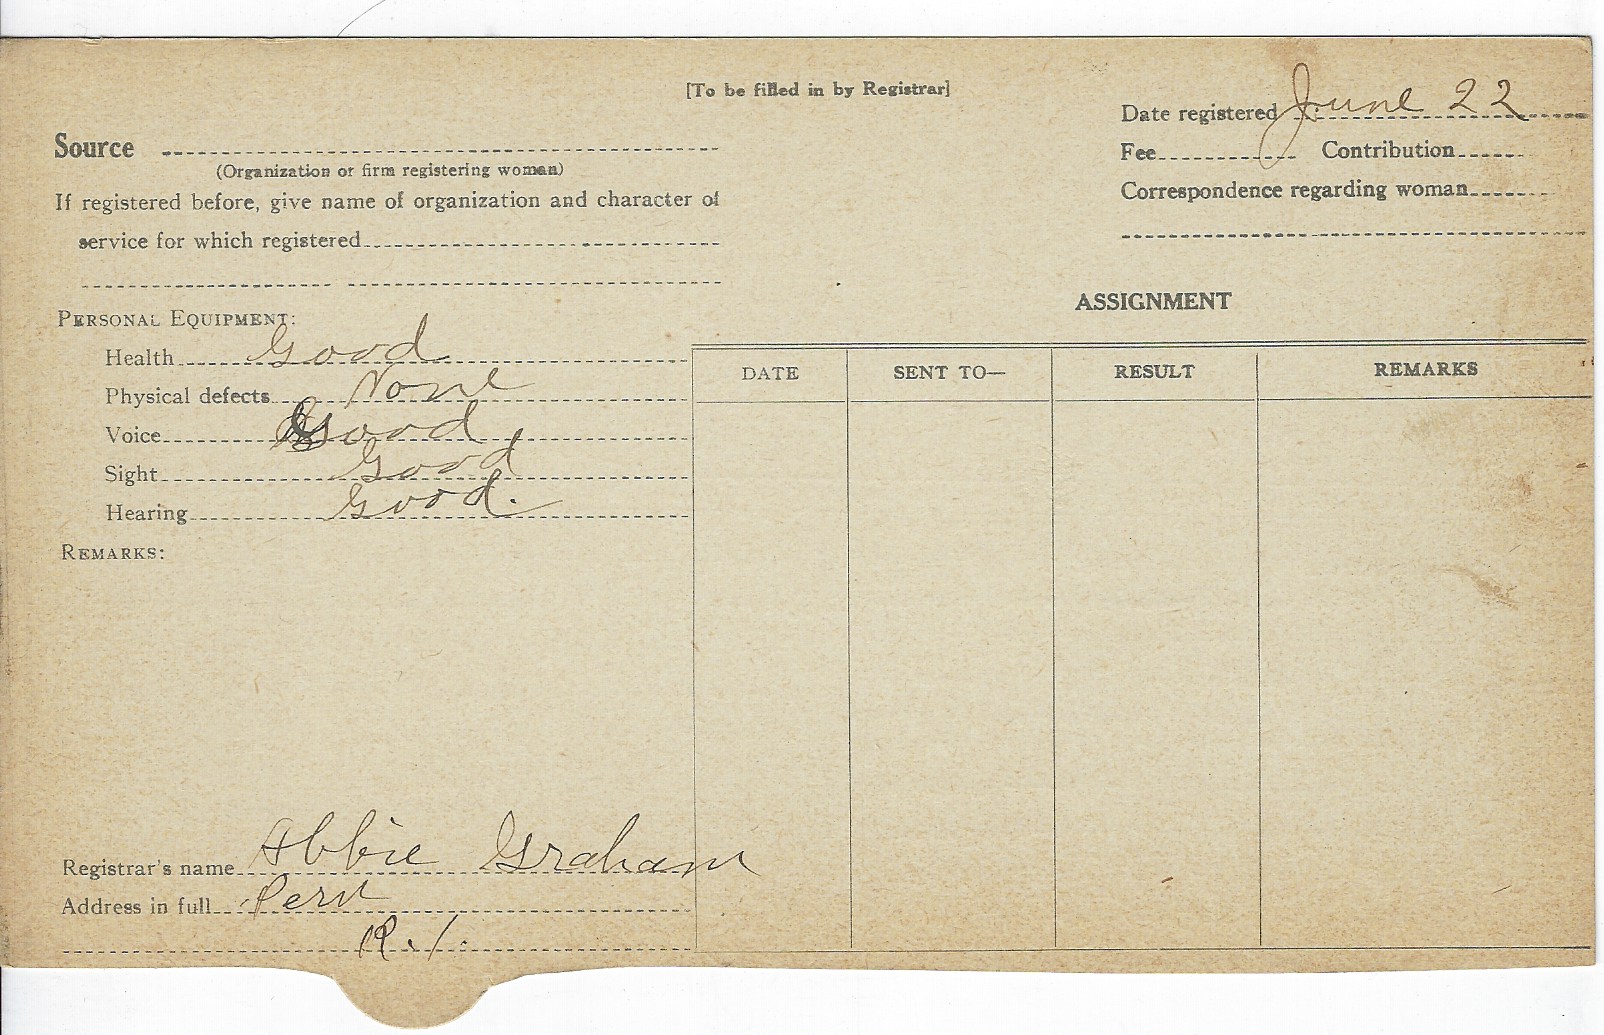 [To be filled in by Registrar]
Date registered June 22
Source
Fee Contribution
(Organization or firm registering woman)
Correspondence regarding woman
If registered before, give name of organization and character of
service for which registered
ASSIGNMENT
PERSONAL EQUIPMENT:
Health Good
Physical defects None
Voice Good
Sight Good
Hearing Good.
DATE SENT TO— RESULT REMARKS
REMARKS:
Registrar's name Abbie Graham
Address in full Peru
R.1.